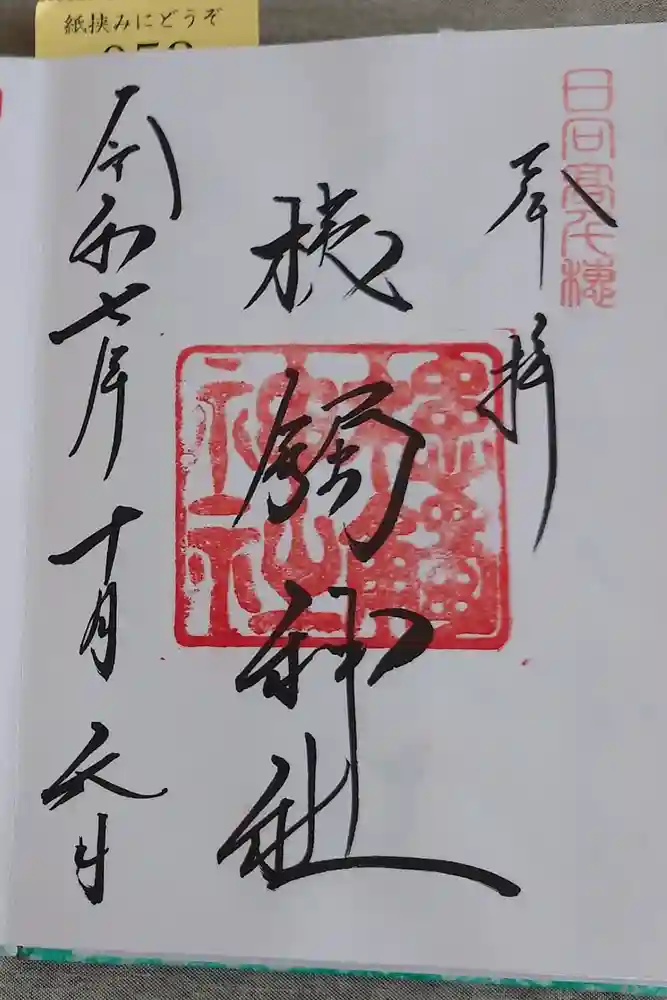 紙挟みにどうぞ
日向高千穂
奉拝
槵觸神社
令和七年十月六日